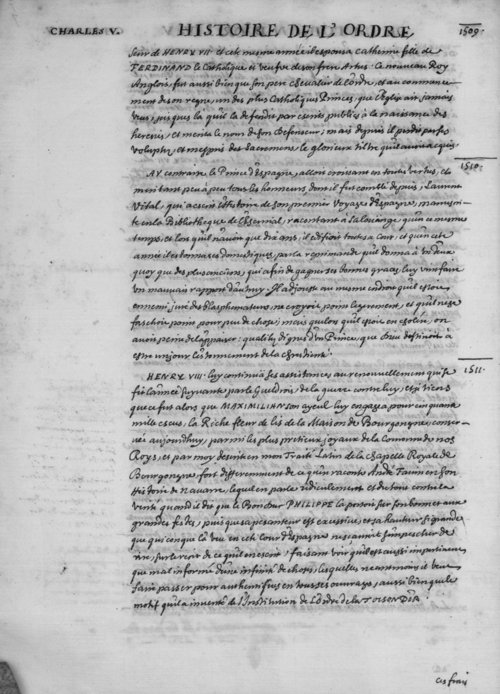 CHARLES V. HISTOIRE DE L'ORDRE 1509.
HENRY VII. et cete mesme année il espousa Catherine fille de
FERDINAND le Catholique et veufve de son frere Artus. Ce nouveau Roy
Anglois, fut aussi bien que son pere Chevalier de l'ordre, et au commence-
ment de son regne, un des plus Catholiques Princes, que l'Eglise ait jamais
veus, jusques là qu'il la defendit par escrits publics à la naissance des
heresies, et merita le nom de son Defenseur; mais depuis il perdit par ses
voluptez, et mespris des Sacremens, le glorieux tiltre qu'il avoit acquis.
1510.
AU contraire, le Prince d'Espagne, alloit croissant en toutes vertus, et
meritant peu à peu tous les honneurs dont il fut comblé depuis; Laurens
Vital, qui a escrit l'histoire de son premier Voyage d'Espagne, manuscri-
te en la Bibliotheque de l'Escurial, racontant à sa louange qu'en ce mesme
temps, et lors qu'il n'avoit que dix ans, il edifioit toute sa Cour, et qu'en cete
année il estonna ses domestiques, par la reprimande qu'il donna à un d'eux
quoy que des plus anciens, qui afin de gagner ses bonnes graces, luy vint faire
un mauvais rapport d'autruy. Il adjouste au mesme endroit qu'il estoit
ennemi juré des blasphemateurs, ne croyoit point legerement, et qu'il ne se
faschoit point pour peu de chose; mais quelors qu'il estoit en colere, on
avoit peine de l'appaiser; qualitez dignes d'un Prince, que Dieu destinoit à
estre un jour l'ornement de la chrestienté.
1511.
HENRY VIII. luy continua ses assistances au renouvellement qui se
fit l'année suyvante par le Gueldrois, de la guerre contre luy, et je tiens
que ce fut alors que MAXIMILIAN son ayeul luy engagea pour cinquante
mille escus, la Riche fleur de lis de la Maison de Bourgongne, conser-
vée aujourdhuy, parmi les plus pretieux joyaux de la Couronne de nos
Roys, et par moy descrite en mon Traité Latin de la Chapelle Royale de
Bourgongne, fort differemment de ce qu'en raconte André Favin en son
Histoire de Navarre, lequel en parle ridiculement et du tout contre la
verité quand il dit que le Bon Duc PHILIPPE la portoit sur son bonnet aux
grandes festes, puis que sa pesanteur est excessive, et sa hauteur si grande
que quiconque l'a veue en cete Cour d'Espagne ne sçauroit s'empescher de
rire, sur le recit de ce qu'il en escrit, faisant voir qu'il est aussi impertinent
que mal informé d'une infinité de choses, lesquelles neantmoins il veut
faire passer pour authentiques en tous ses ouvrages, aussi bien que le
motif qu'il a inventé de l'Institution de l'Ordre de la TOISON D'OR.
ces frais